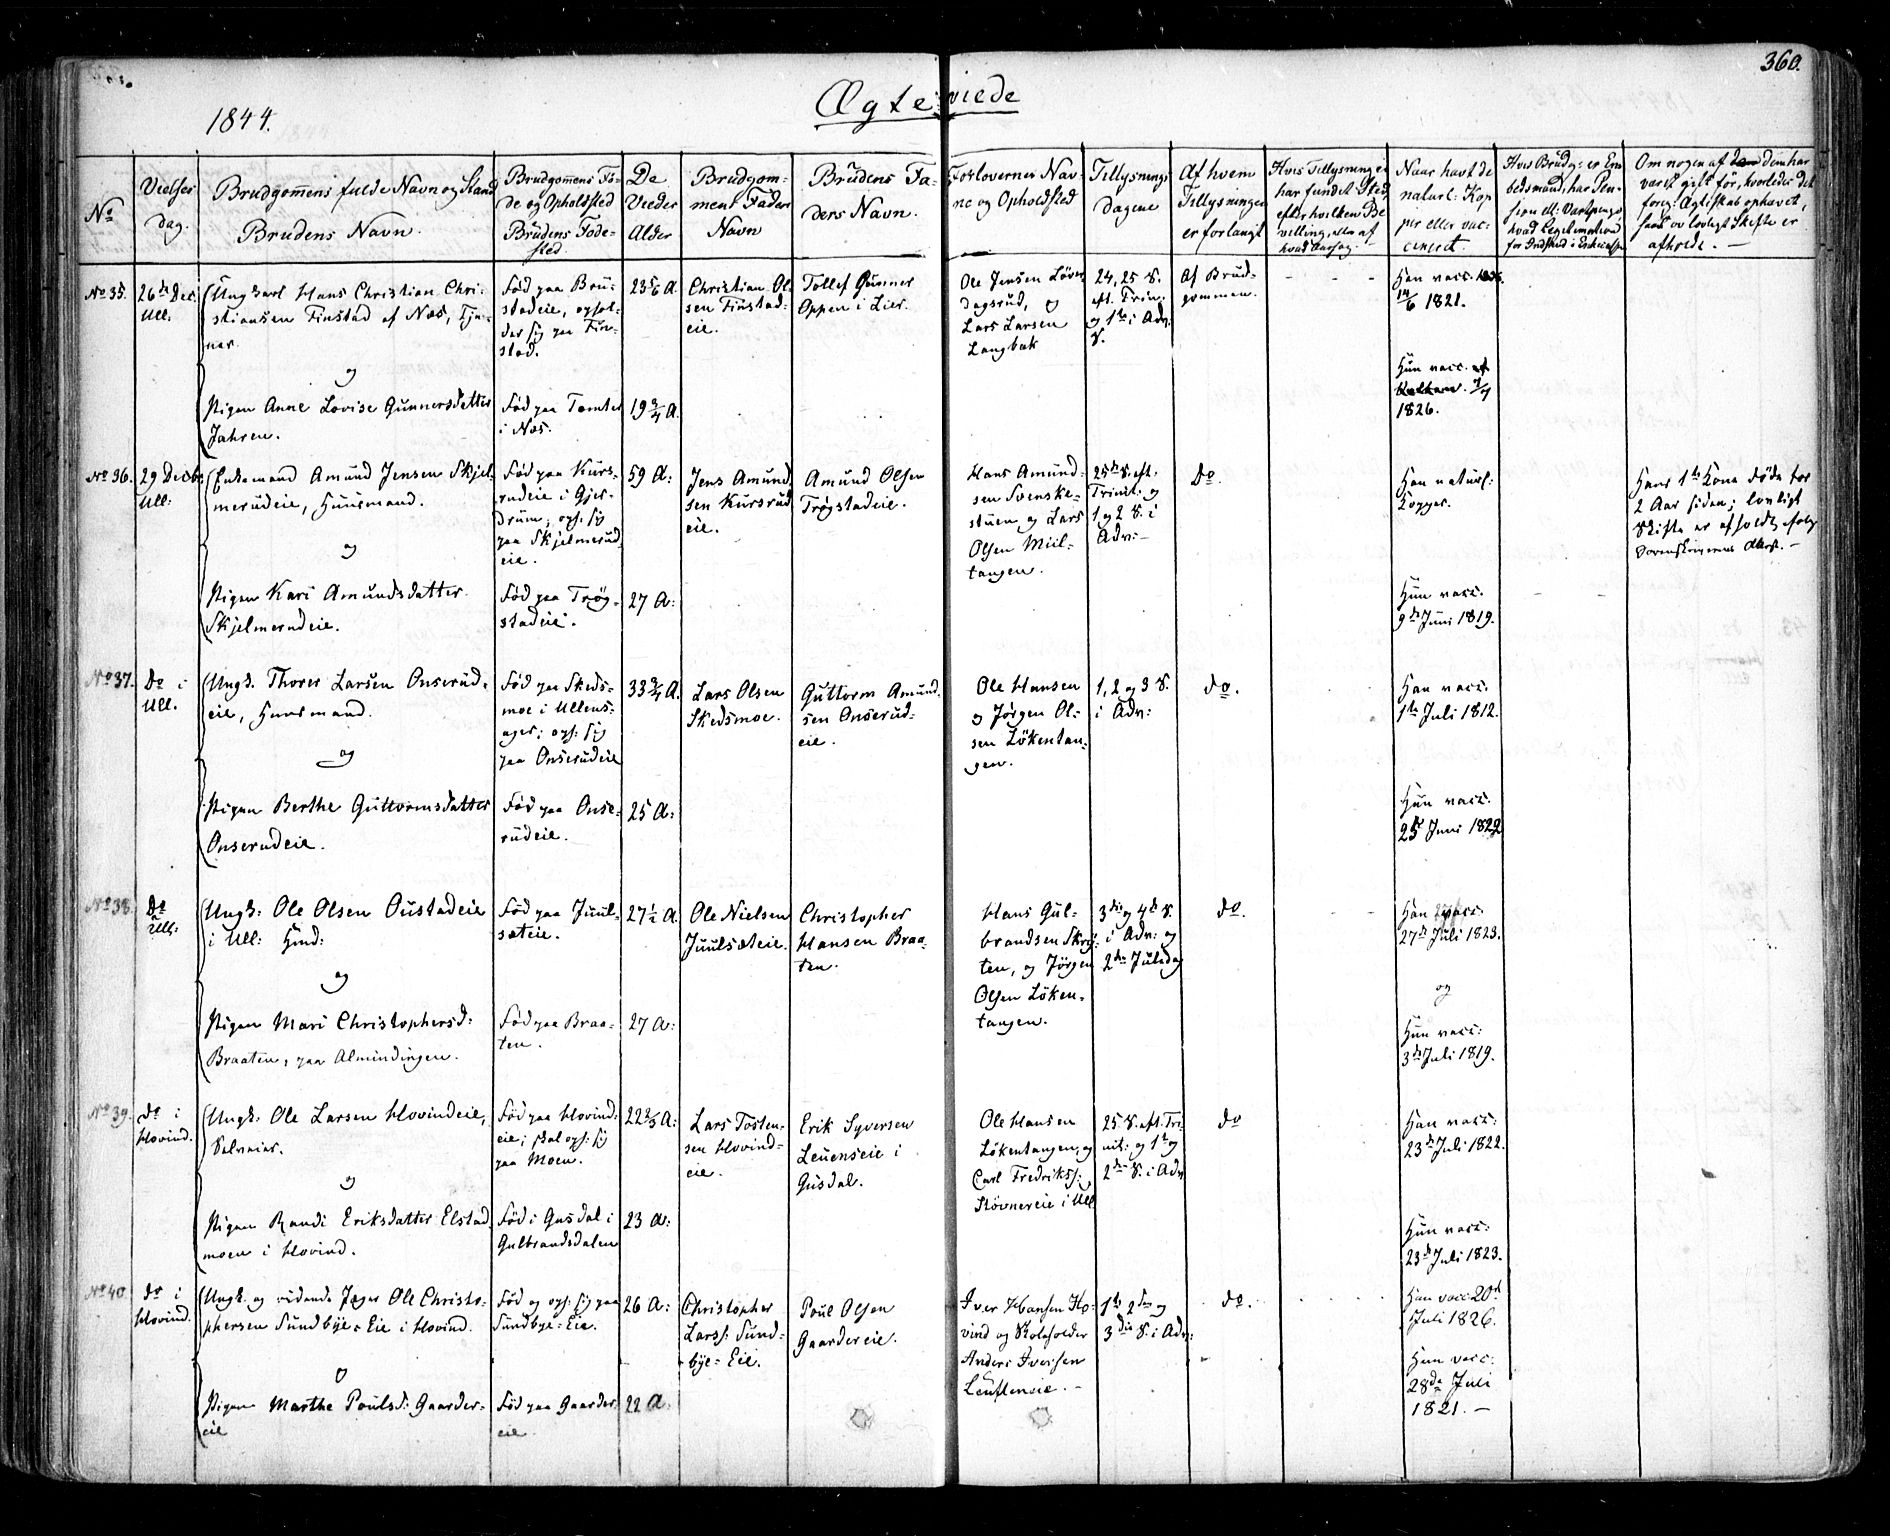 360.
Ægteviede
1844.
No
Vielses
dag.
Brudgomens fulde Navn og Stand
Brudens Navn.
Brudgomens Fø-
de og Opholdsted
Brudens Føde-
sted.
De
Vieder
Alder
Brudgom-
mens Faders
Navn
Brudens Fa-
ders Navn.
Forlovernes Nav-
ne og Opholdsted
Tillysnings
dagene
Af hvem
Tillysningen
er forlangt
Hvis Tillysning ei
har fundet Sted,
efter hvilken Be
villing eller af
hvad Aarsag.
Naar havt de
naturl: Kop
per eller vac-
cineret.
Hvis Brudg: er Em
bedsmand, har Pen-
sion
Om nogen af dem har
været gift før, hvorledes det
foreg: Ægteskab ophævet,
samt ov lovligt Skifte er
afholdt. —
No 35.
26de Dec.
Ull:
Ungkarl Hans Christian Chri-
stiansen Finstad af Næs, Tje-
ner.
og
Pigen Anne Lovise Gunnersdatter
Jahren.
Fød paa Bru-
stadeie, ophol-
der sig paa Fin-
stad.
Fød paa Tomter
i Næs.
23 5/6 A.
19 3/4 A.
Christian Ol
sen Finstad-
eie.
Tollef Gunner
Oppen i Lier.
Ole Jensen Løven
dagsrud, og
Lars Larsen
Langbak
24, 25 S.
eft. Trin.
og 1ste i Adv.
S.
Af Brud-
gommen.
Han vacc.
14/6 1821.
Hun vacc.
1826.
No 36.
29 Decbr
Ull:
Enkemand Amund Jensen Skjel-
merudeie, Huusmand.
og
Pigen Kari Amundsdatter
Skjelmerudeie.
Fød paa Kurs-
rudeie i Gjer-
drum; oph: sig
paa Skjelmerud
eie.
Fød paa Trøg-
stadeie.
59 A:
27 A:
Jens Amund
sen Kursrud
eie.
Amund Olsen
Trøgstadeie.
Hans Amund-
sen Svenske-
stuen og Lars
Olsen Miil-
tangen.
25de S. eft.
Trinit: og
1 og 2 S. i
Adv: —
Do.
Han naturl.
Kopper.
Hun vacc.
9de Juni 1819.
Hans 1ste Kone døde for
2 Aar siden; lovligt
Skifte er afholdt, ifølge
Sorenskriverens Attest. —
No 37.
Do i
Ull.
Ungk. Thorer Larsen Onserud-
eie, Huusmand.
og
Pigen Berthe Guttormsdatter
Onserudeie.
Fød paa Skeds-
moe i Ullens-
ager; oph: sig
paa Onserudeie
Fød paa Onse-
rudeie.
33 3/4 A.
25 A:
Lars Olsen
Skedsmoe.
Guttorm Amund
sen Onserud-
eie.
Ole Hansen
og Jørgen Ol-
sen Løkentan-
gen.
1, 2 og 3 S.
i Adv:
do.
Han vacc.
1ste Juli 1812.
Hun vacc.
25de Juni 1822
No 38.
Do
Ull:
Ungk: Ole Olsen Oustadeie
i Ull: Hmd:
og
Pigen Mari Christophersd:
Braaten, paa Almindingen.
Fød paa Juul-
sæteie.
Fød paa Braa-
ten.
27 1/2 A.
27 A:
Ole Nielsen
Juulsæteie.
Christopher
Hansen Braa-
ten.
Hans Gul-
brandsen
ten, og Jørgen
Olsen Løken-
tangen.
3die og 4de S.
i Adv: og
2den Juledag
do.
Han vacc:
27de Juli 1823.
og
Hun vacc:
3de Juli 1819.
No 39.
do i
Hovind.
Ungk: Ole Larsen Hovindeie,
Selveier.
og
Pigen Randi Eriksdatter Elstad
moen i Hovind.
Fød paa Hovind-
eie; skal oph: sig
paa Moen.
Fød i Gusdal i
Gulbrandsdalen
22 2/3 A:
23 A:
Lars Tosten-
sen Hovind-
eie.
Erik Syversen
Leuenseie i
Gusdal.
Ole Hansen
Løkentangen, og
Carl Fredriks:
Støvnereie i Ull
25 S. eft. Tri-
nit: og 1ste og
2den S. i Adv
do
Han vacc:
23de Juli 1822.
Hun vacc:
23de Juli 1823.
No 40
do i
Hovind.
Ungk. og Ole Christo-
phersen Sundbye-Eie i Hovind.
og
Pigen Marthe Poulsd: Gaarder-
eie
Fød og oph: sig paa
Sundbye-Eie.
Fød paa Gaarder
eie.
26 A:
22 A:
Christopher
Lars: Sund-
bye-Eie.
Poul Olsen
Gaardereie.
Iver Hansen Ho-
vind og Skoleholder
Anders Iversen
1ste 2den og
3die S. i Adv:
do.
Han vacc: 20de
Juli 1826.
Hun vacc:
28de Juli
1821. —